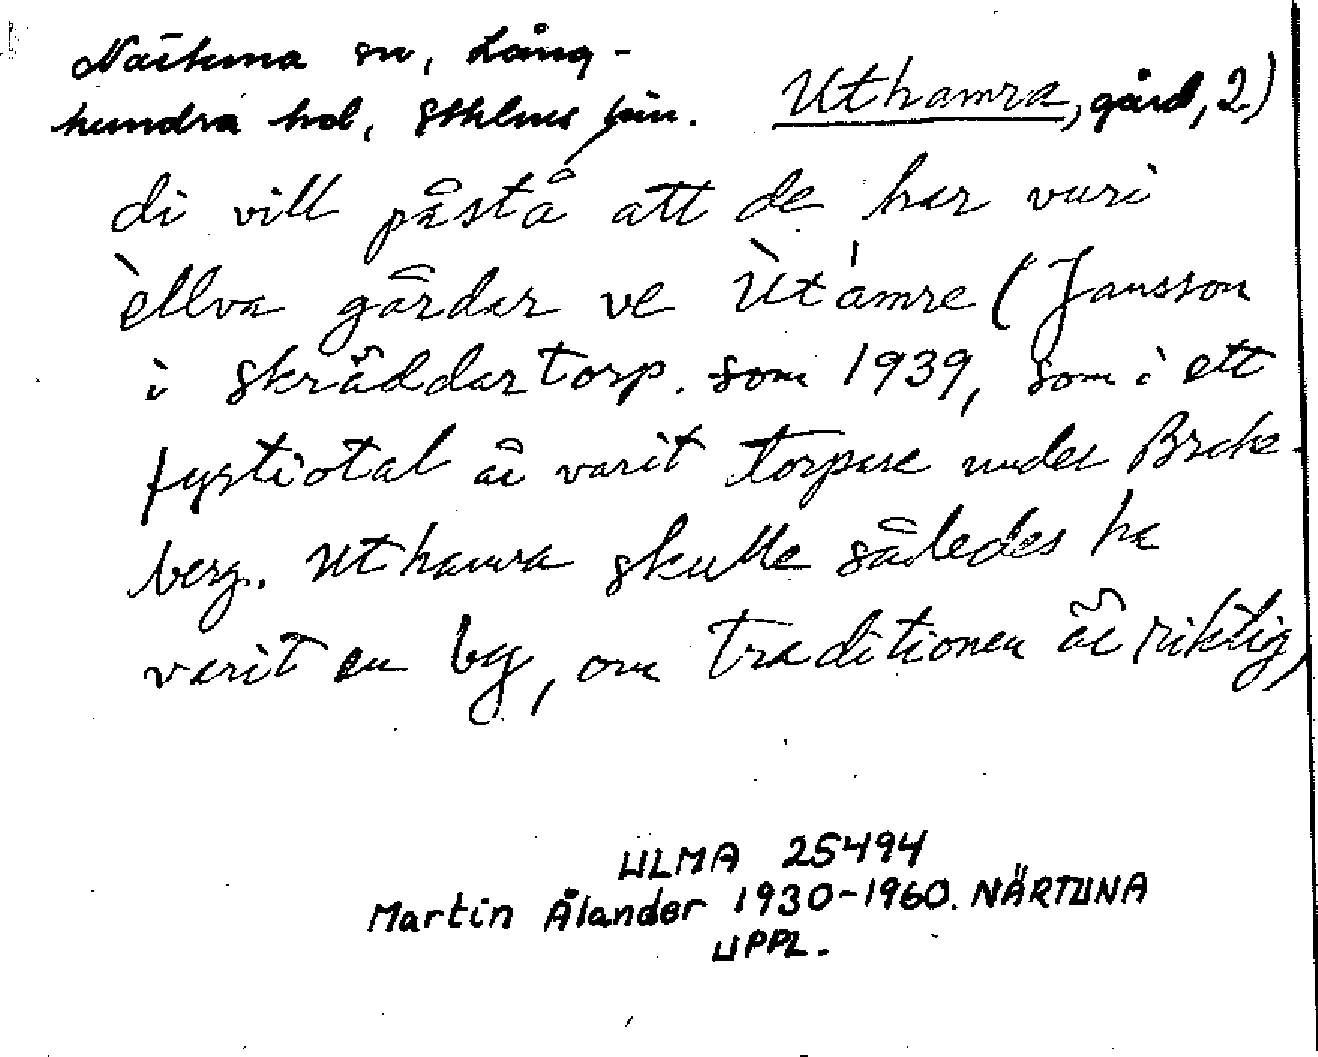 Närtuna sn, Lång-
hundra hd, Sthlms län.
Uthamra, gård, 2)
di vill påstå att de har vuri
èllva gårdar ve Ùtámre (Jansson
i Skräddartorp. som 1939, som i ett
fyrtiotal år varit torpare under Brok-
berg. Uthamra skulle således ha
varit en by, om traditionen är riktig)
ULMA 25494
Martin Ålander 1930-1960. NÄRTUNA
UPPL.